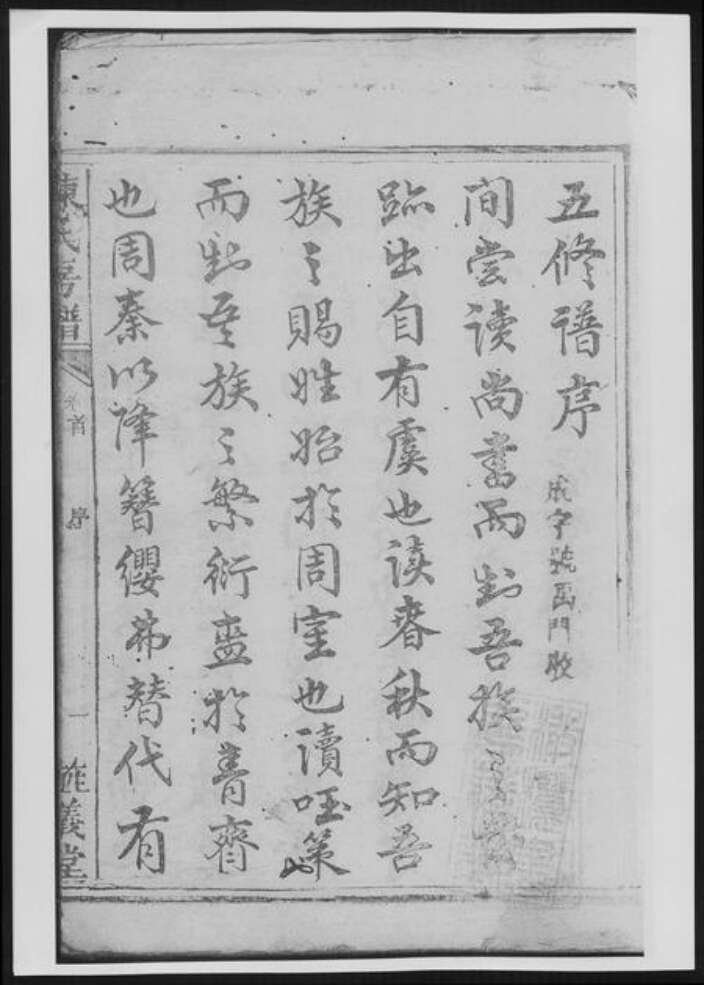 五修谱序
成字號 門收
间尝读尚書而知吾族之
跡出自有虞也读春秋而知吾
族之賜姓始於周室也讀国策
而知吾族之繁衍盛於青齊
也周秦以降簪纓弗替代有
陳氏房譜
卷首
序
一
旌義堂